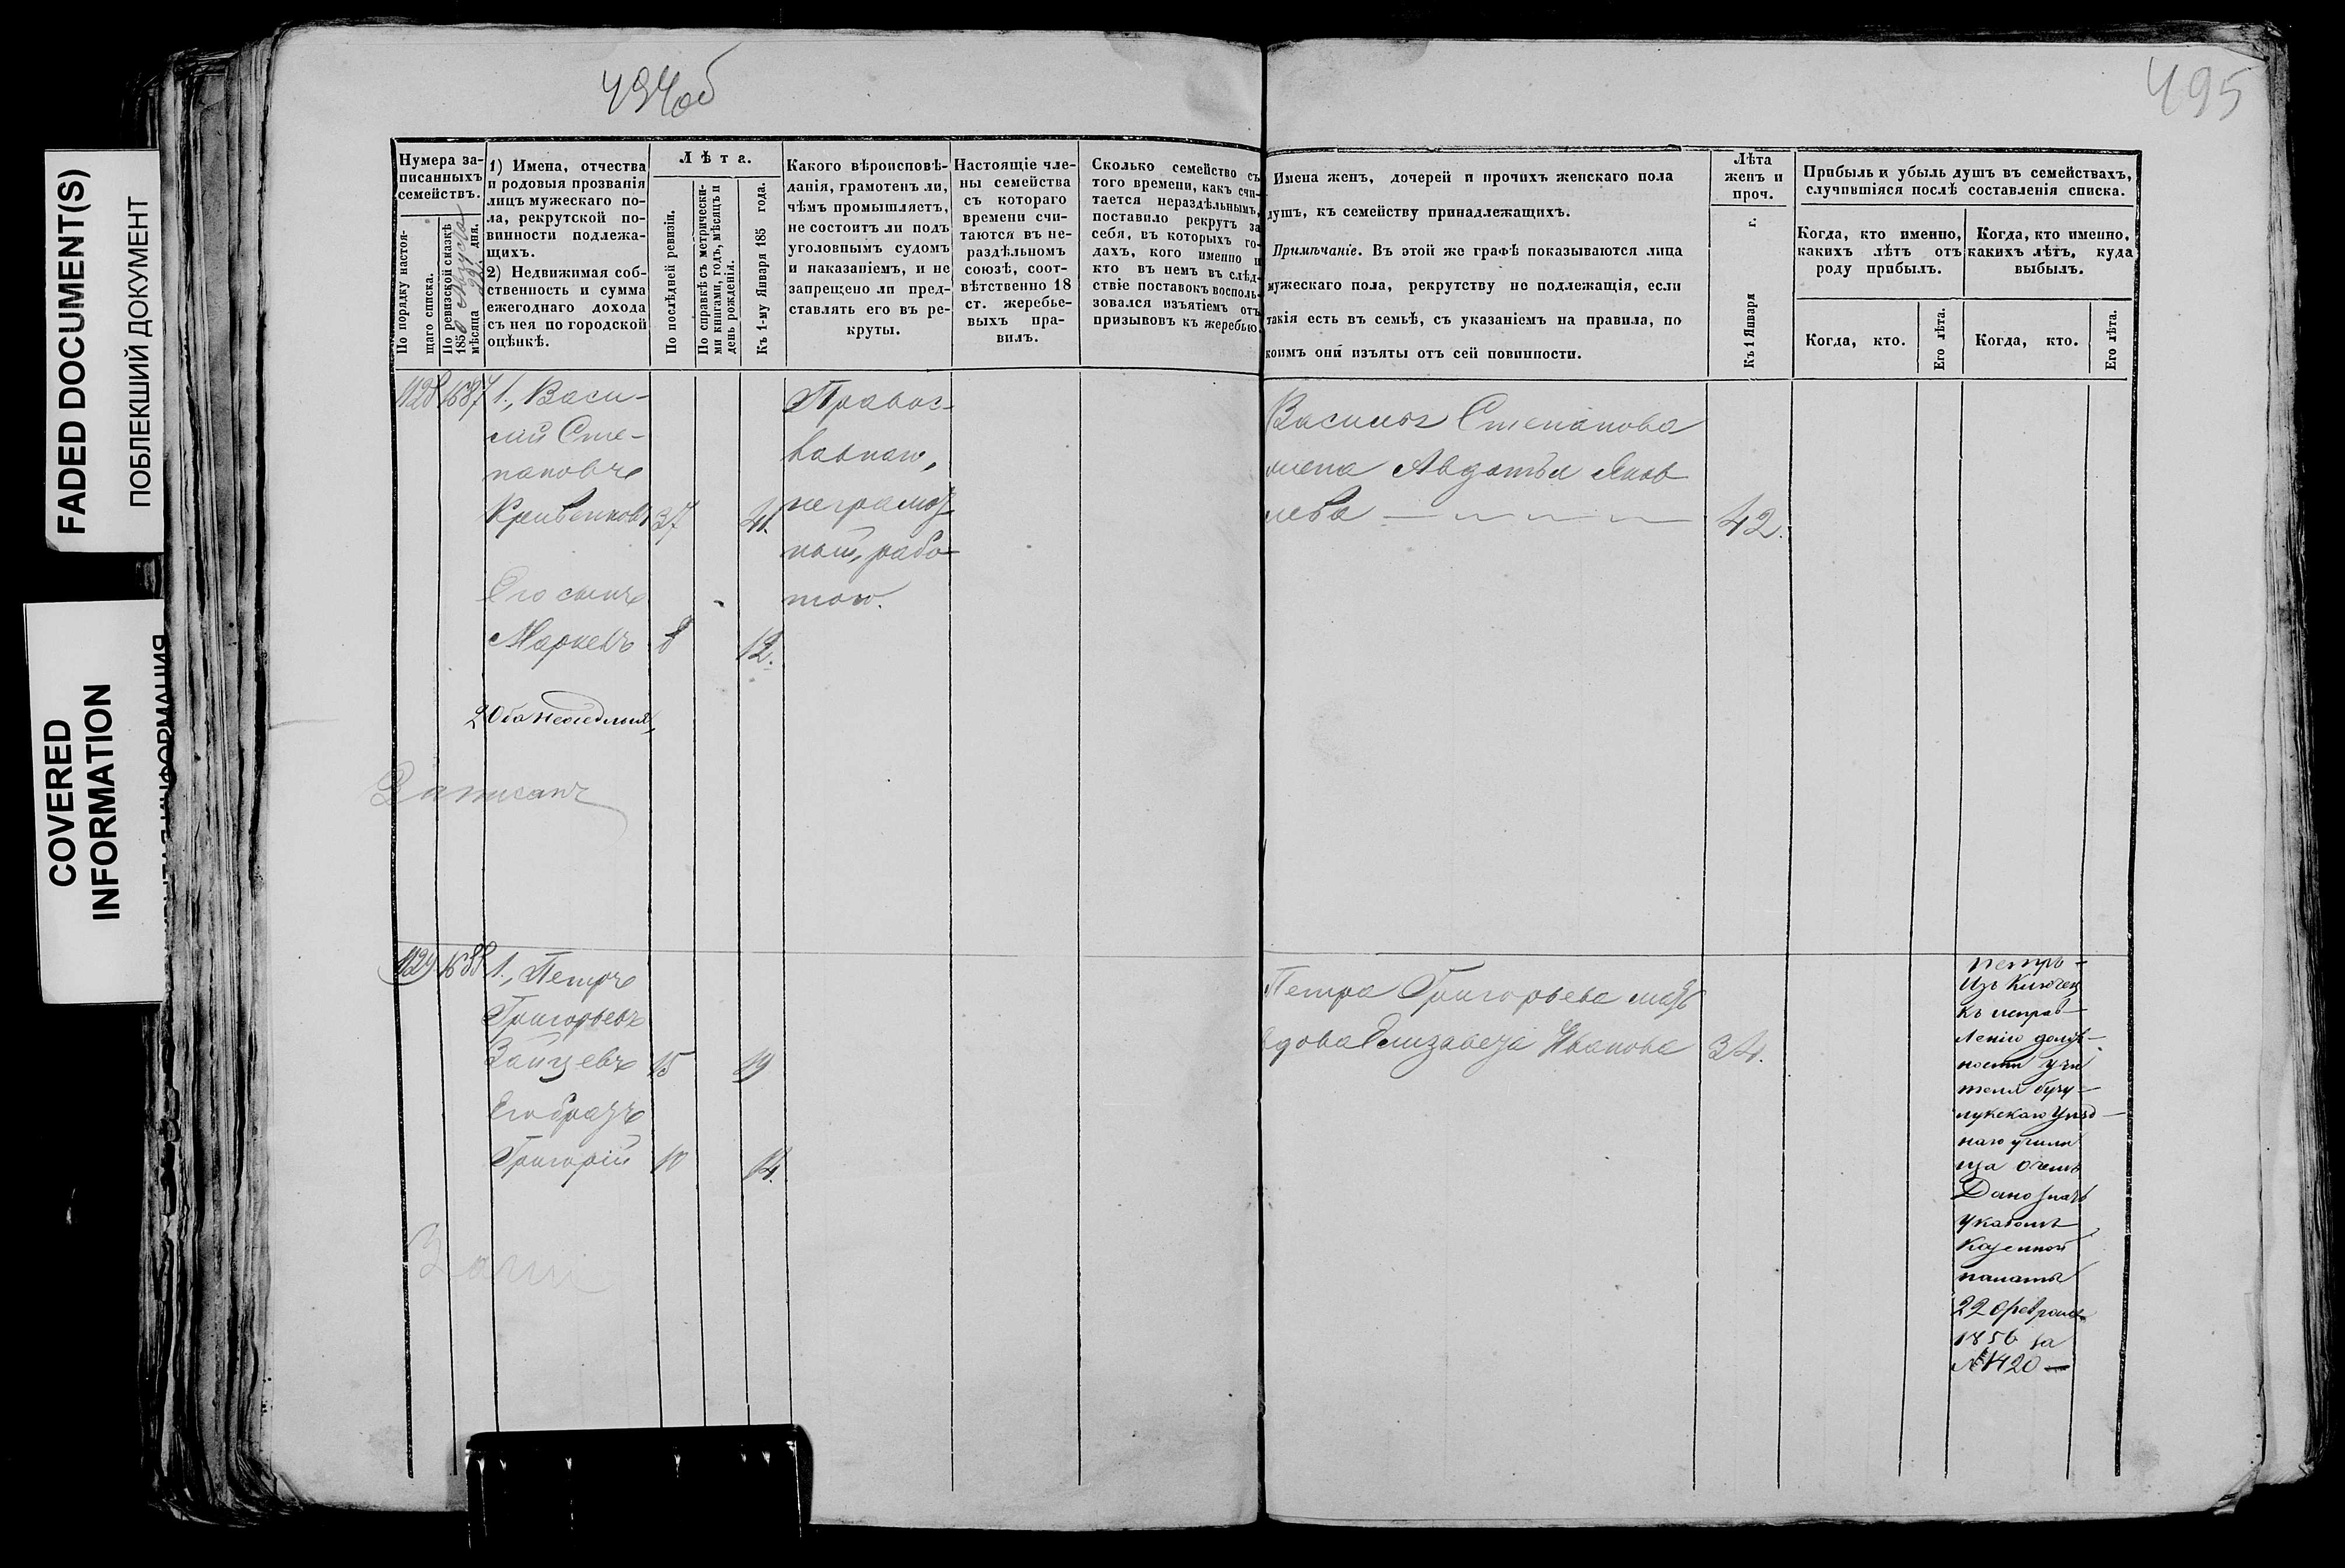 494об
495
FADED DOCUMENT(S)
ПОБЛЕКШИЙ ДОКУМЕНТ
COVERED
INFORMATION
Нумера за-
писанныхъ
семействъ.
По порядку настоя-
щаго списка.
По ревизской сказкѣ
1850 Августа
мѣсяца 22 дня.
1) Имена, отчества
и родовыя прозванія
лицъ мужескаго по-
ла, рекрутской по-
винности подлежа-
щихъ.
2) Недвижимая соб-
ственность и сумма
ежегоднаго дохода
съ нея по городской
оцѣнкѣ.
Лѣта.
По послѣдней ревизіи.
По справкѣ съ метрически-
ми книгами, годъ, мѣсяцъ и
день рожденія.
Къ 1-му Января 185 года.
Какого вѣроисповѣ-
данія, грамотенъ ли,
чѣмъ промышляетъ,
не состоитъ ли подъ
уголовнымъ судомъ
и наказаніемъ, и не
запрещено ли пред-
ставлять его въ ре-
круты.
Настоящіе чле-
ны семейства
съ котораго
времени счи-
таются въ не-
раздѣльномъ
союзѣ, соот-
вѣтственно 18
ст. жеребье-
выхъ пра-
вилъ.
Сколько семейство съ
того времени, какъ счи-
тается нераздѣльнымъ,
поставило рекрутъ за
себя, въ которыхъ го-
дахъ, кого именно и
кто въ немъ въ слѣд-
ствіе поставокъ восполь-
зовался изъятіемъ отъ
призывовъ къ жеребью.
Имена женъ, дочерей и прочихъ женскаго пола
душъ, къ семейству принадлежащихъ.
Примѣчаніе. Въ этой же графѣ показываются лица
мужескаго пола, рекрутству не подлежащія, если
такія есть въ семьѣ, съ указаніемъ на правила, по
коимъ они изъяты отъ сей повинности.
Лѣта
женъ и
проч.
Къ 1 Января г.
Прибыль и убыль душъ въ семействахъ,
случившіяся послѣ составленія списка.
Когда, кто именно,
какихъ лѣтъ отъ
роду прибылъ.
Когда, кто именно,
какихъ лѣтъ, куда
выбылъ.
Когда, кто.
Его лѣта.
Когда, кто.
Его лѣта.
1128 1687 1., Васи-
лій Сте-
пановъ
Кривенковъ 37 41.
Его сынъ
Маркелъ 8 12.
Правос-
лавнаго,
неграмот-
ный, рабо-
тою.
Василья Степанова
жена Авдотья Яков
лева 42.
Записанъ
1129 1688 1., Петръ
Григорьевъ
Зайцевъ 15 19
Его братъ
Григорій 10 14.
Петра Григорьева мать
вдова Елизавета Иванова 34.
Запис
Петръ
къ исправ-
ленію долж-
ности учи
теля бузу-
лукскаго Уѣзд-
наго учили
ща о чемъ
Дано знать
указомъ
Казенной
палаты
22 февраля
1856 за
№ 1420